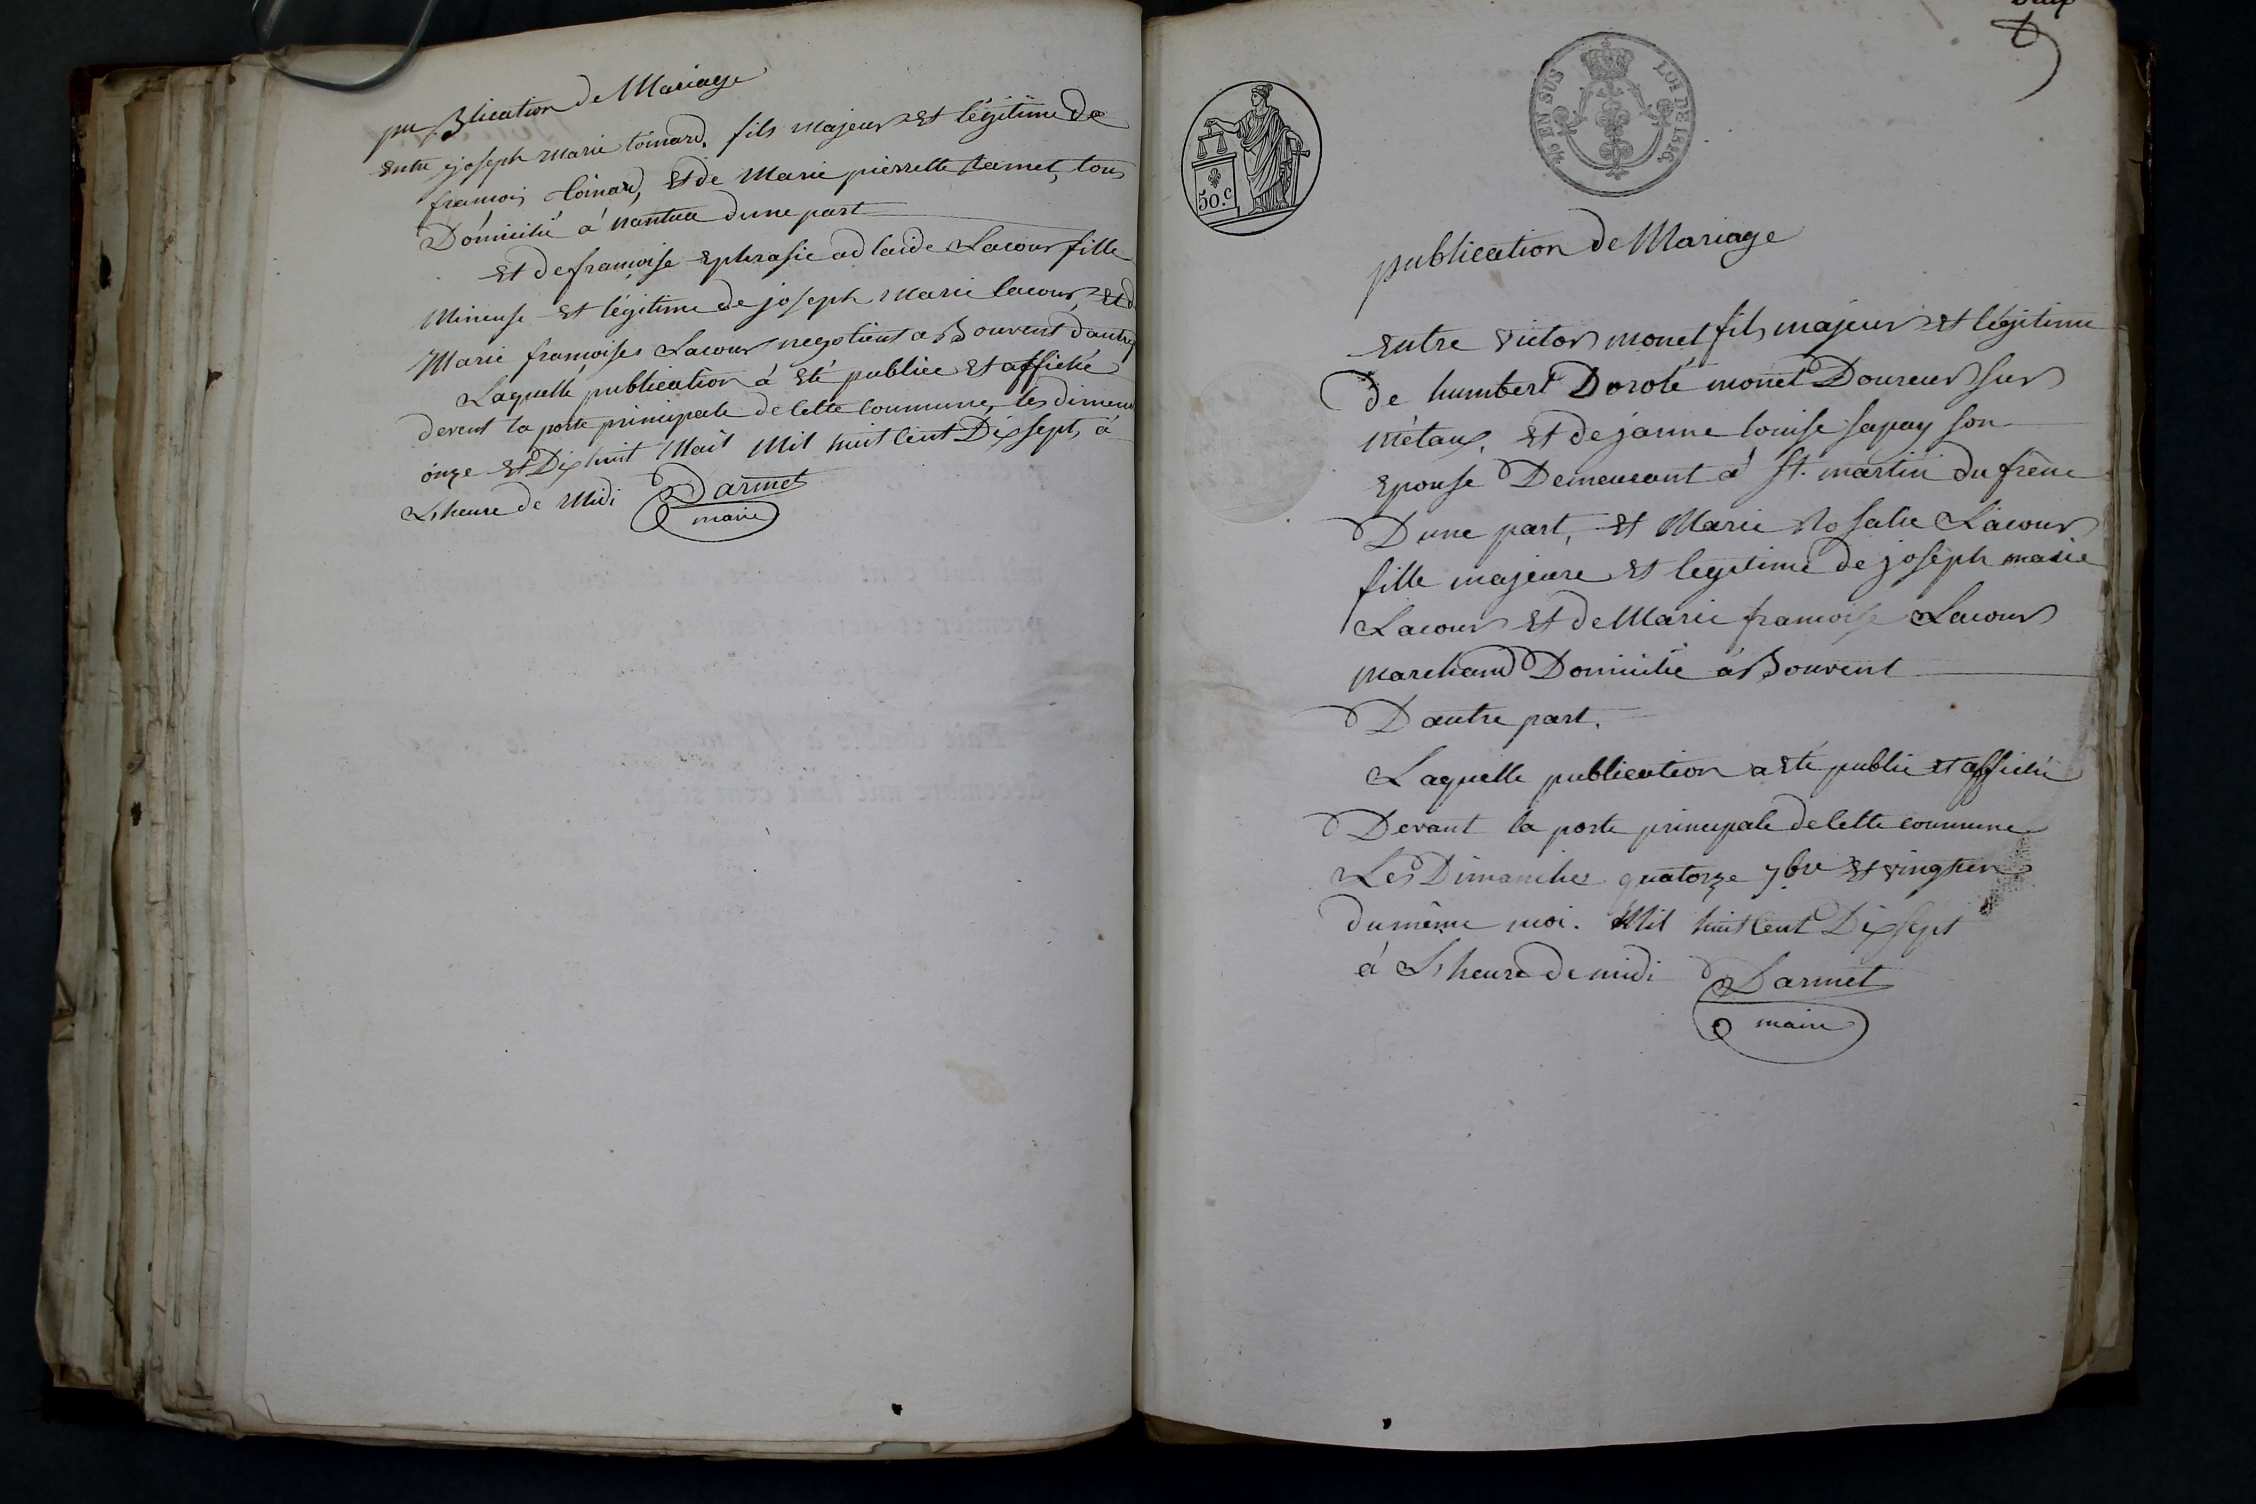 publication de Mariage
entre joseph marie toinard, fils majeur et légitime de
francois toinard, et de Marie pierrette tous
Domicilié á nantua dune part
et de francoise ephrasie adlaide Lacour fille
mineuse et légitime de joseph Marie lacour, et d
Marie francoises Lacour negotient a Bouvent dautre
Laquelle publication á été publiée et affiché
devent la porte principale de cette commune, les dimen
onze et Dix huit Mai Mil huit Cent Dix sept, á
L,heure de Midi Darmet
maire
50.c
EN SUS LOI DE 1816.
publication de Mariage
entre victor monet fils majeur et légitime
de humbert Doroté monet Doureur sur
métaux, et de janne louise sapay son
epouse Demeurant á St. martin du frêne
Dune part, et Marie Rosalie Lacour
fille majeure et legitime de joseph marie
Lacour et de Marie francoise Lacour
marchand Domicilié á Bouvent
Dautre part.
Laquelle publication a été publié et affiché
Devant la porte principale de cette commune
Les Dimanches quatorze 7bre et vingt
du même moi. Mil huit Cent Dix sept
á L,heure de midi Darmet
maire